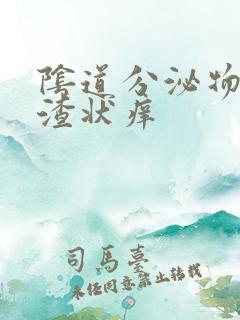 陰道分泌物
渣状痒
司馬臺
未经同意禁止转载